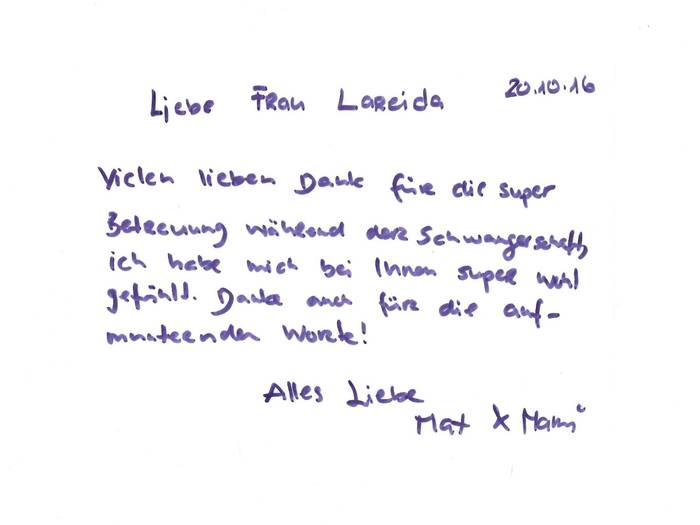 Liebe Frau Lareida 20.10.16
Vielen lieben Dank für die super
Betreuung während der Schwangerschaft,
ich habe mich bei Ihnen super wohl
gefühlt. Danke auch für die auf-
munternden Worte!
Alles Liebe
Mat &